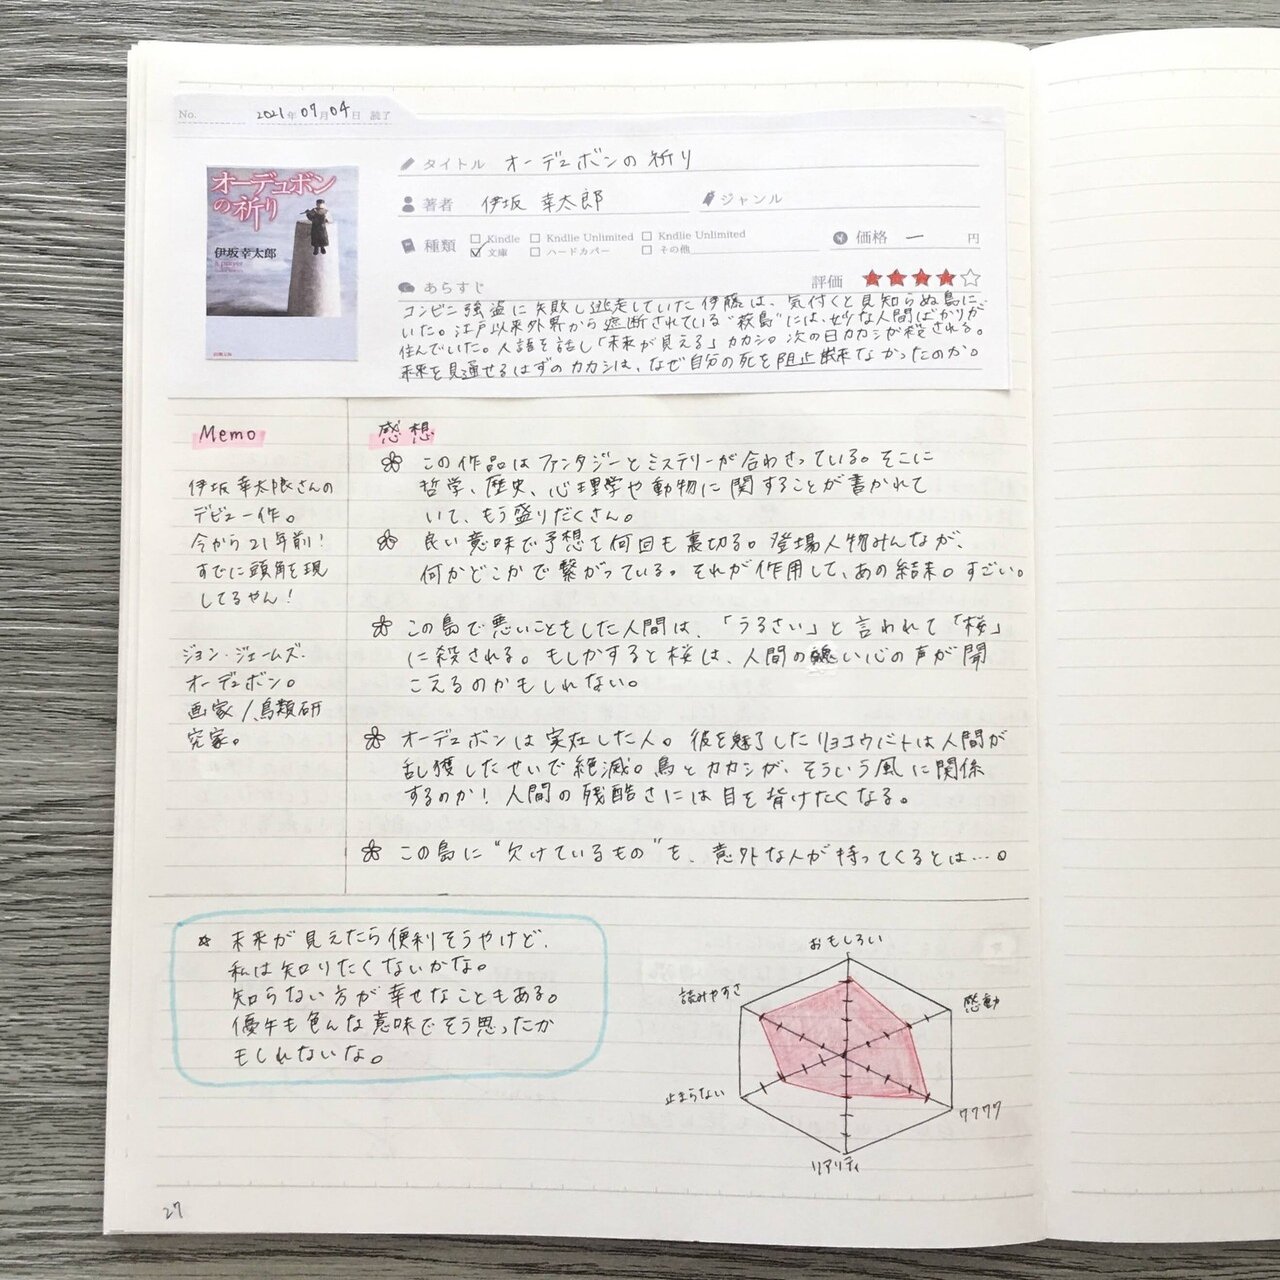 No. 2021年07月04日 読了
オーデュボン
の祈り
伊坂幸太郎
タイトル オーデュボンの祈り
著者 伊坂 幸太郎 ジャンル
種類 Kindle Kndlie Unlimited Kndlie Unlimited
文庫 ハードカバー その他
価格 ー 円
評価 ★★★★☆
あらすじ
コンビニ強盗に失敗し逃走していた伊藤は、気付くと見知らぬ島に
いた。江戸以来外界から遮断されている"荻島"には、妙な人間ばかりが
住んでいた。人語を話し「未来が見える」カカシ。次の日カカシが殺される。
未来を見通せるはずのカカシは、なぜ自分の死を阻止出来なかったのか。
Memo
伊坂幸太郎さんの
デビュー作。
今から21年前!
すでに頭角を現
してるやん!
ジョン・ジェームズ・
オーデュボン。
画家/鳥類研
究家。
感想
この作品はファンタジーとミステリーが合わさっている。そこに
哲学、歴史、心理学や動物に関することが書かれて
いて、もう盛りだくさん。
良い意味で予想を何回も裏切る。登場人物みんなが、
何かどこかで繋がっている。それが作用して、あの結末。すごい。
この島で悪いことをした人間は、「うるさい」と言われて「桜」
に殺される。もしかすると桜は、人間の醜い心の声が聞
こえるのかもしれない。
オーデュボンは実在した人。彼を魅了したリョコウバトは人間が
乱獲したせいで絶滅。鳥とカカシが、そういう風に関係
するのか!人間の残酷さには目を背けたくなる。
この島に"欠けているもの"を、意外な人が持ってくるとは…。
☆ 未来が見えたら便利そうやけど、
私は知りたくないかな。
知らない方が幸せなこともある。
優午も色んな意味でそう思ったか
もしれないな。
おもしろい
読みやすさ
感動
止まらない
ワクワク
リアリティ
27